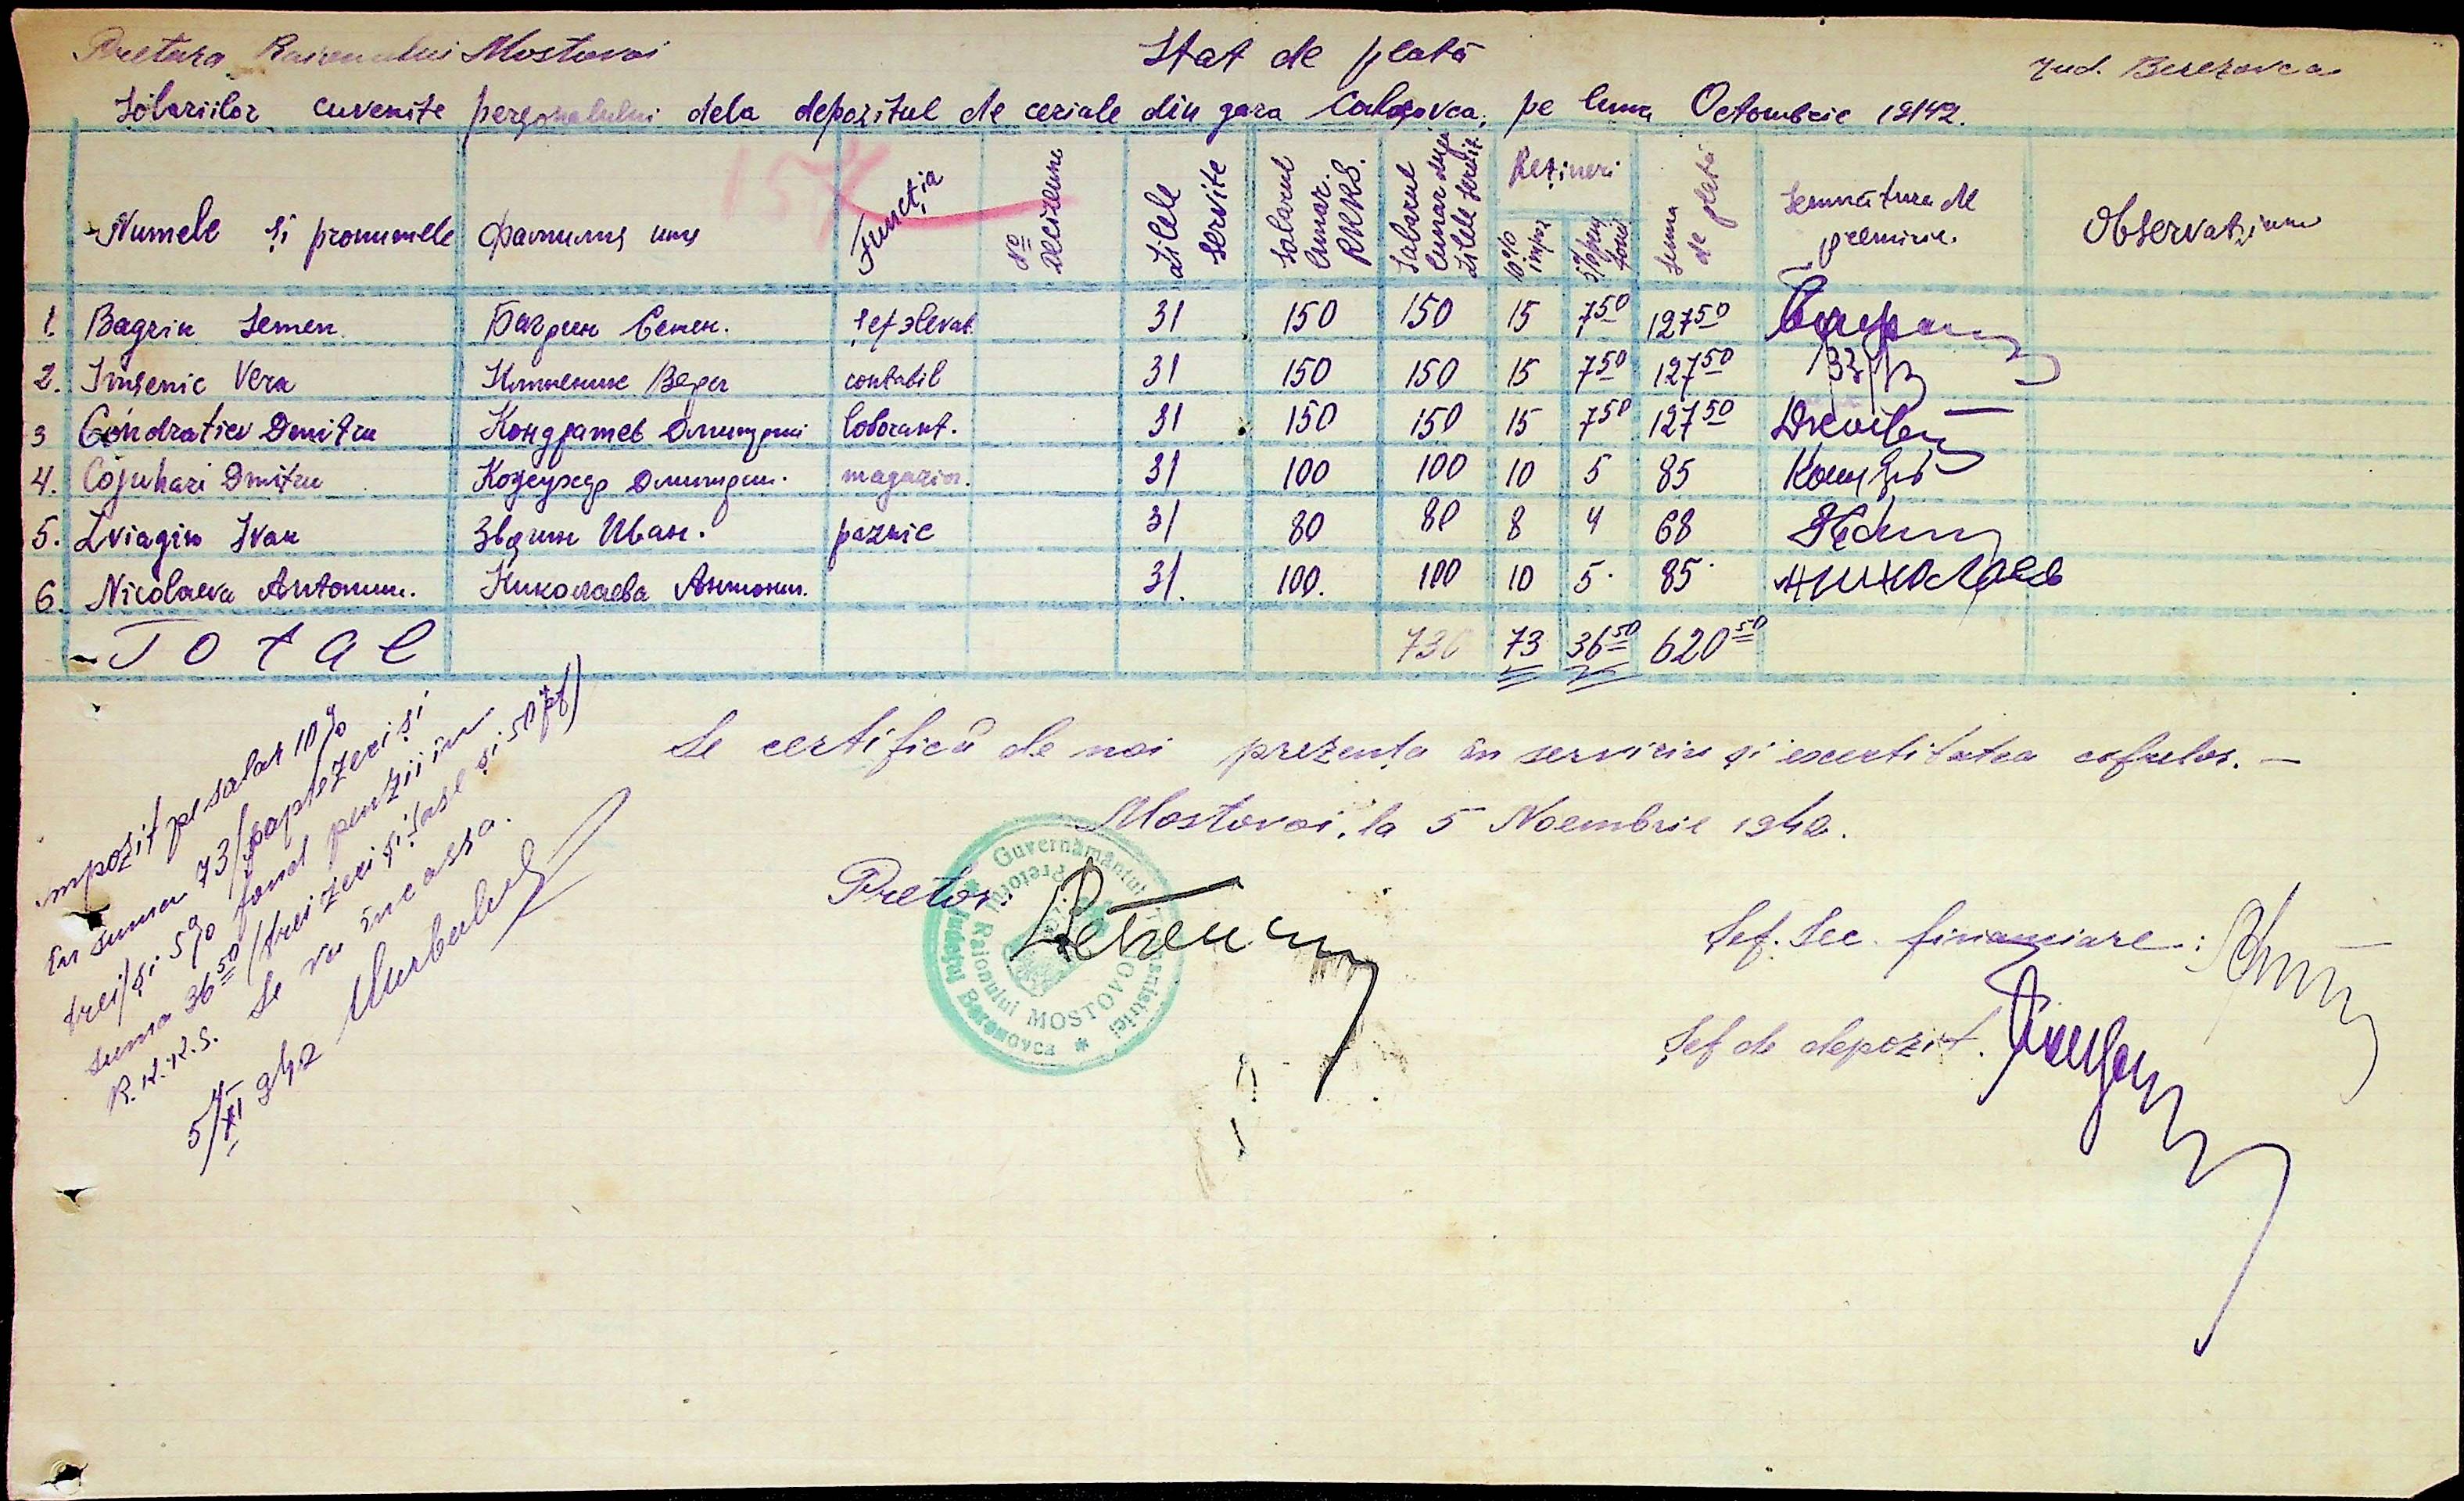 Pretura Raionului Mostovoi
Stat de plată
Jud. Berezovca
Solariilor cuvenite personalului dela depozitul de ceriale din gara Colosovca, pe luna Octombrie 1942.
157
Numele și pronumele Фамилия имя Funcția № Deciziune Zilele servite Salarul lunar. RKKS. Salarul lunar după zilele servite Rețineri 10% impoz 5% pens fond Suma de plată Semnătura de primire. Observațiuni
1. Bagrin Semen. Багрин Семен. șef elevat. 31 150 150 15 7 50 127 50
2. Imsenic Vera Вера contabil 31 150 150 15 7 50 127 50
3 Condratiev Dmitru Кондратев Дмитрий laborant. 31 150 150 15 7 50 127 50
4. Cojuhari Dmitru Кожухар Дмитрий. magazin. 31 100 100 10 5 85
5. Zviagin Ivan Звягин Иван. paznic 31 80 80 8 4 68
6. Nicolaeva Antonin. Николаева Антонин. 31. 100. 100 10 5. 85. Николаева
Total 730 73 36 50 620 50
Se certifică de noi prezența în serviciu și exactitatea cifrelor. —
Mostovoi, la 5 Noembrie 1942.
Pretor:
Guvernământul Transnistriei
Județul Berezovca
Pretoru Raionului MOSTOVOI
Șef. Sec. financiare:
Șef de depozit.
impozit pe salar 10%
în suma 73/șaptezeci și
trei/ și 5% fond penzii în
suma 36 50 /treizeci și șase și 50 pf)
R.K.K.S. Se va încassa.
5/XI 942